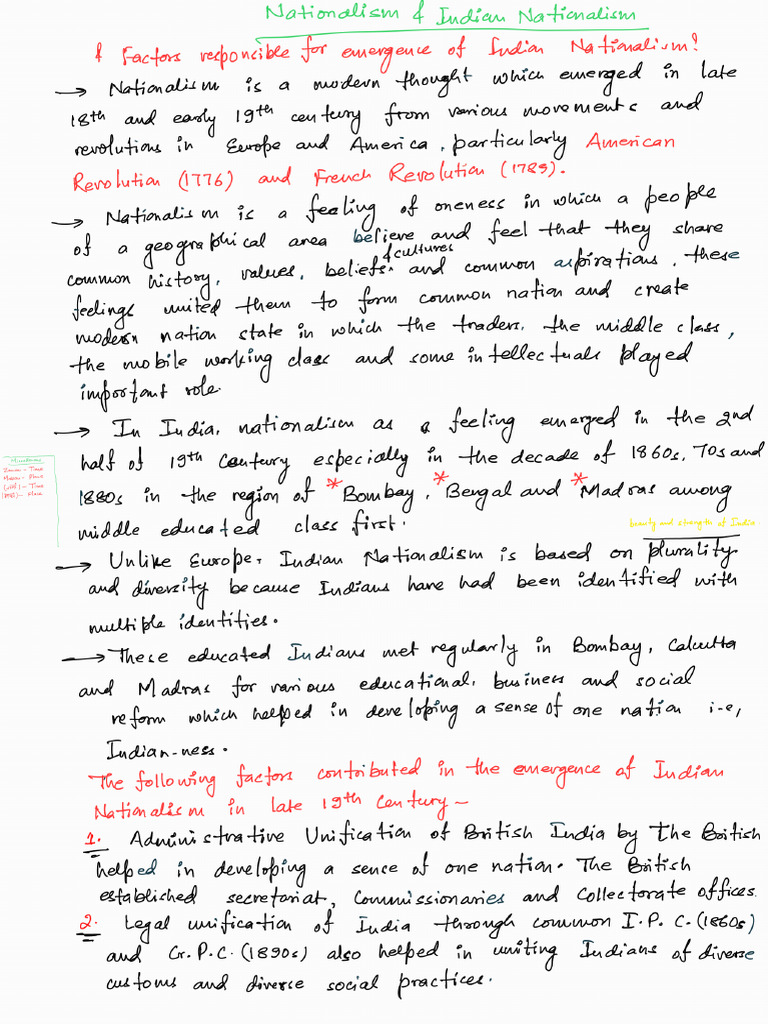 Nationalism & Indian Nationalism
& Factors responsible for emergence of Indian Nationalism?
→ Nationalism is a modern thought which emerged in late
18th and early 19th century from various movements and
revolutions in Europe and America, particularly American
Revolution (1776) and French Revolution (1789).
→ Nationalism is a feeling of oneness in which a people
of a geographical area believe and feel that they share
& cultures
common history, values, beliefs and common aspirations, these
feelings united them to form common nation and create
modern nation state in which the traders, the middle class,
the mobile working class and some intellectuals played
important role.
→ In India, nationalism as a feeling emerged in the 2nd
half of 19th Century especially in the decade of 1860s, 70s and
1880s in the region of *Bombay, *Bengal and *Madras among
middle educated class first.
beauty and strength of India
→ Unlike Europe, Indian Nationalism is based on plurality
and diversity because Indians have had been identified with
multiple identities.
→ These educated Indians met regularly in Bombay, Calcutta
and Madras for various educational, business and social
reform which helped in developing a sense of one nation i-e,
Indian-ness.
The following factors contributed in the emergence of Indian
Nationalism in late 19th Century –
1. Administrative Unification of British India by the British
helped in developing a sense of one nation. The British
established secretariat, Commissionaries and Collectorate offices.
2. Legal unification of India through common I.P.C.(1860s)
and Cr.P.C.(1890s) also helped in uniting Indians of diverse
customs and diverse social practices.